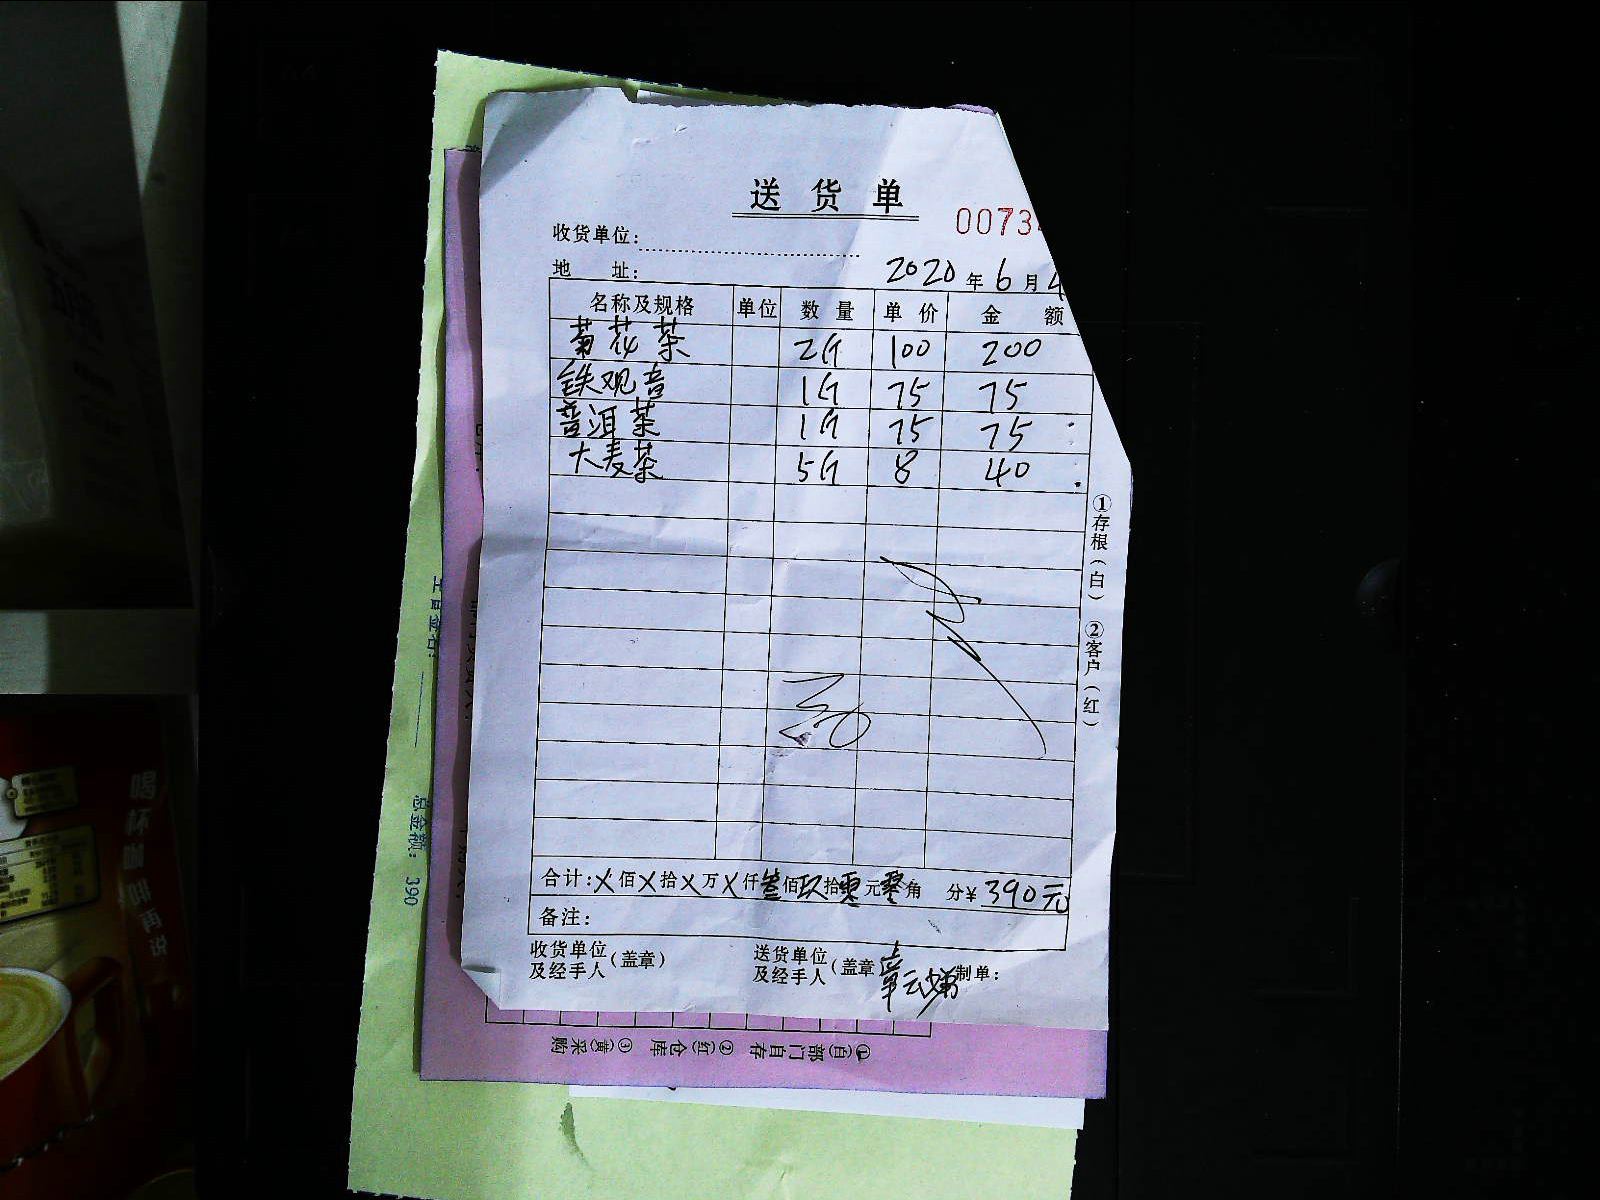 送货单
0073
收货单位:
地 址:
2020年6月4
名称及规格 单位 数量 单价 金额
菊花茶 2斤 100 200
铁观音 1斤 75 75
普洱茶 1斤 75 75
大麦茶 5斤 8 40
①存根(白) ②客户(红)
合计:乂佰乂拾乂万乂仟叁佰玖拾零元零角 分¥390元
备注:
收货单位及经手人(盖章)
送货单位及经手人(盖章)
制单:
总金额: 390
①(白)部门自存 ②(红)仓库 ③(黄)采购
喝杯
再说